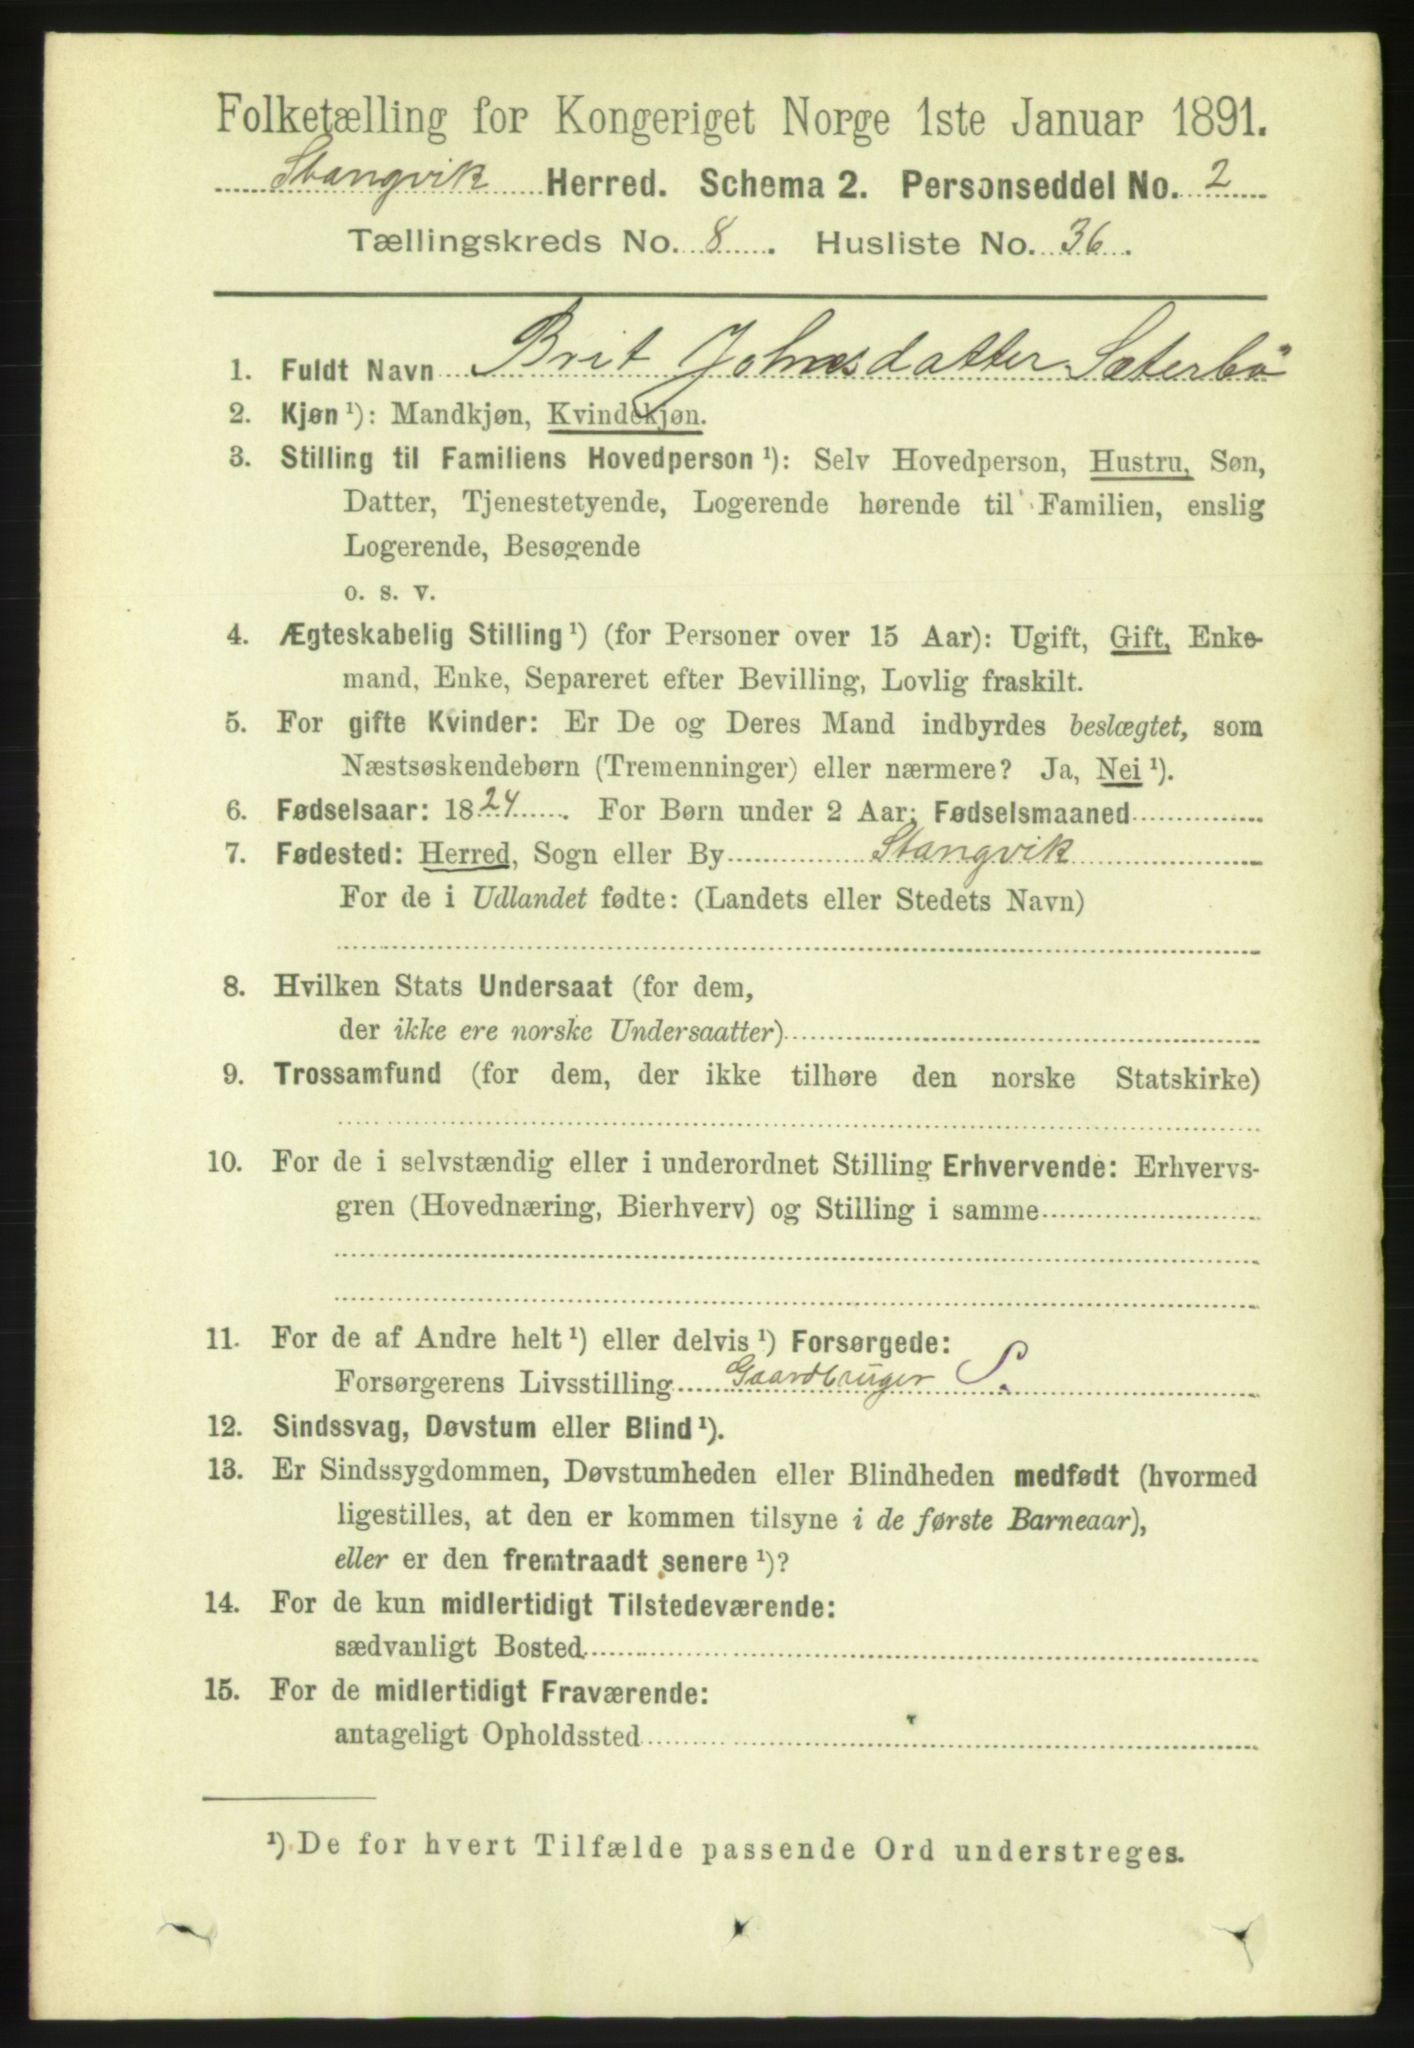 Folketælling for Kongeriget Norge 1ste Januar 1891.
Stangvik Herred. Schema 2. Personseddel No. 2
Tællingskreds No. 8. Husliste No. 36.
1. Fuldt Navn Brit Johnsdatter Sæterbö
2. Kjøn ¹): Mandkjøn, Kvindekjøn.
3. Stilling til Familiens Hovedperson ¹): Selv Hovedperson, Hustru, Søn,
Datter, Tjenestetyende, Logerende hørende til Familien, enslig
Logerende, Besøgende
o. s. v.
4. Ægteskabelig Stilling ¹) (for Personer over 15 Aar): Ugift, Gift, Enke-
mand, Enke, Separeret efter Bevilling, Lovlig fraskilt.
5. For gifte Kvinder: Er De og Deres Mand indbyrdes beslægtet, som
Næstsøskendebørn (Tremenninger) eller nærmere? Ja, Nei ¹).
6. Fødselsaar: 1824. For Børn under 2 Aar: Fødselsmaaned
7. Fødested: Herred, Sogn eller By Stangvik
For de i Udlandet fødte: (Landets eller Stedets Navn)
8. Hvilken Stats Undersaat (for dem,
der ikke ere norske Undersaatter)
9. Trossamfund (for dem, der ikke tilhøre den norske Statskirke)
10. For de i selvstændig eller i underordnet Stilling Erhvervende: Erhvervs-
gren (Hovednæring, Bierhverv) og Stilling i samme
11. For de af Andre helt ¹) eller delvis ¹) Forsørgede:
Forsørgerens Livsstilling Gaardbruger S.
12. Sindssvag, Døvstum eller Blind ¹).
13. Er Sindssygdommen, Døvstumheden eller Blindheden medfødt (hvormed
ligestilles, at den er kommen tilsyne i de første Barneaar),
eller er den fremtraadt senere ¹)?
14. For de kun midlertidigt Tilstedeværende:
sædvanligt Bosted
15. For de midlertidigt Fraværende:
antageligt Opholdssted
¹) De for hvert Tilfælde passende Ord understreges.